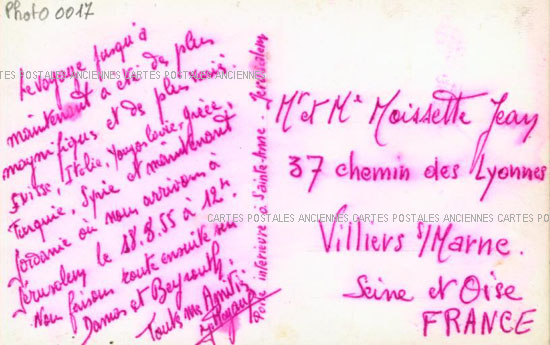 Photo 0017
Le voyage jusqu'à
maintenant a été de plus
magnifiques et de plus
Suisse, Italie, Yougoslavie, Grèce,
Turquie, Syrie et maintenant
Jordanie ou nous arrivons à
Jérusalem le 18.8.55 à 12h.
Nous faisons toute ensuite sur
Damas et Beyrouth.
Toute mes Amitiés
intérieure de Sainte-Anne. Jérusalem
Mr et Me Moissette Jean
37 chemin des Lyonnes
Villiers s/Marne.
Seine et Oise
FRANCE
CARTES POSTALES ANCIENNES CARTES POSTALES ANCIENNES
CARTES POSTALES ANCIENNES CARTES POSTALES ANCIENNES CARTES POSTALES